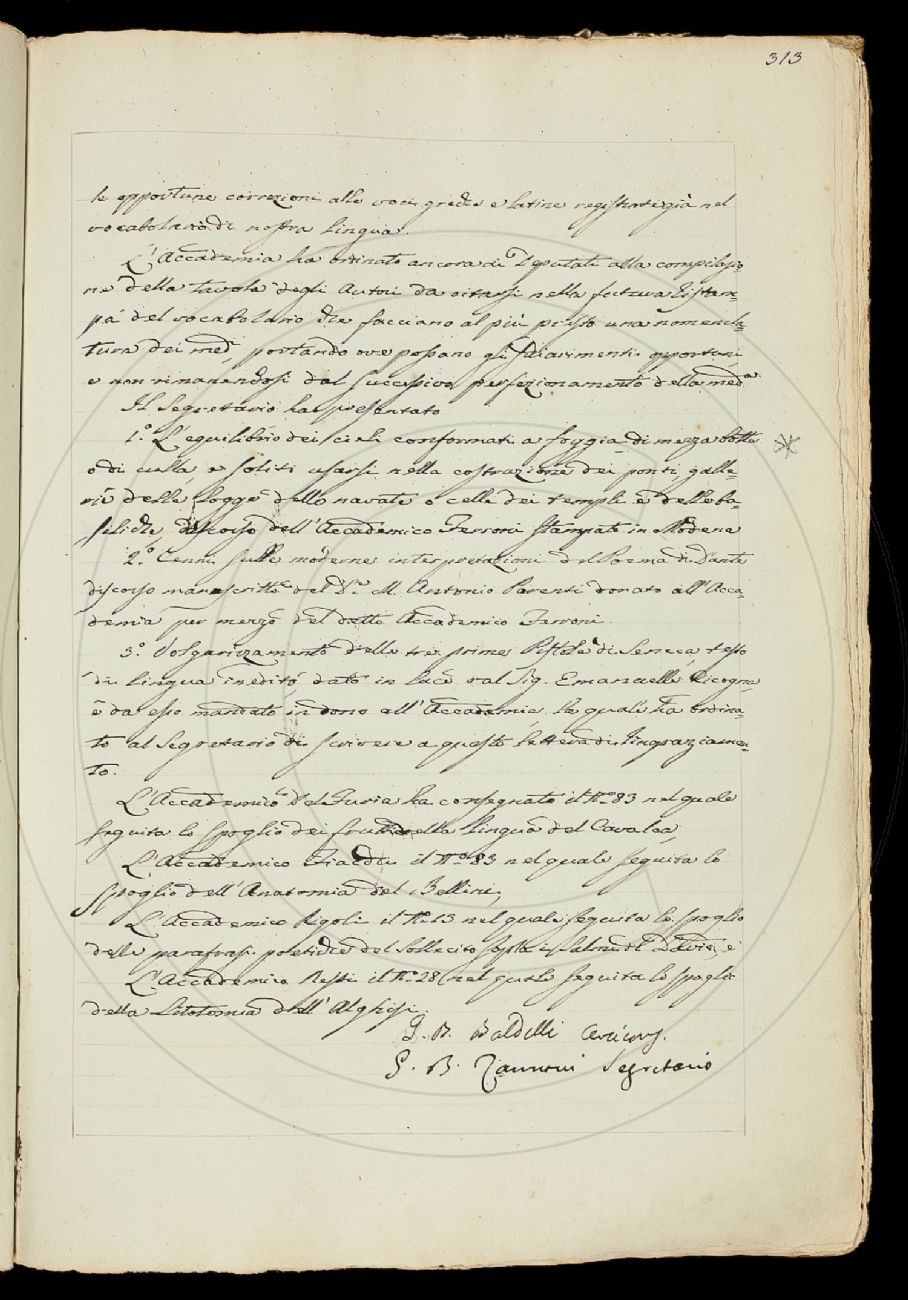 313
le opportune correzioni alle voci greche e latine registrate già nel
vocabolario di nostra lingua.
L'Accademia ha ordinato ancora ai Deputati alla compilazio=
ne della tavola degli Autori da citarsi nella futura ristam=
pa del vocabolario che facciano al più presto una nomencla=
tura dei med.i, portando ove possano gli schiarimenti opportuni,
e non rimanendosi dal successivo perfezionamento della med.a
Il Segretario ha presentato
1.° L'equilibrio dei cieli conformati a foggia di mezza botte
o di culla, e soliti usarsi nella costruzione dei ponti, galle=
rie delle logge delle navate o celle dei templi e delle ba=
siliche, discorso dell'Accademico Ferroni stampato in Modena
2.° Cenni sulle moderne interpretazioni del Poema di Dante
discorso manoscritto del D.re M. Antonio Parenti donato all'Acca=
demia per mezzo del detto Accademico Ferroni.
3.° Volgarizzamento delle tre prime Pistole di Seneca, testo
di lingua inedito, dato in luce dal Sig. Emanuelle Cicogna,
e da esso mandato in dono all'Accademia, la quale ha ordina=
to al Segretario di scrivere a questo lettera di ringraziamen=
to.
L'Accademico Del Furia ha consegnato il N.° 83 nel quale
seguita lo spoglio dei frutti della lingua del Cavalca,
L'Accademico Fiacchi il N.° 83 nel quale seguita lo
spoglio dell'Anatomia del Bellini,
L'Accademico Rigoli il N.° 13 nel quale seguita lo spoglio
delle parafrasi poetiche del Sollecito sopra i salmi di David, e
L'Accademico Nesti il N.° 28 nel quale seguita lo spoglio
della Litotomia dell'Alghisi.
G. B. Baldelli
G. B. Zannoni Segretario